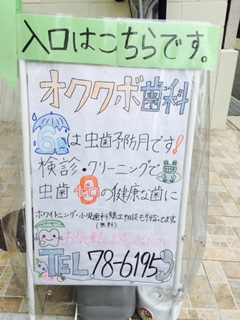 入口はこちらです。
オククボ歯科
6月は虫歯予防月です!
検診・クリーニングで
虫歯ゼロの健康な歯に
ホワイトニング・小児歯科・矯正相談も行なってます
(無料)
お気軽にお電話ください
TEL 78-6195